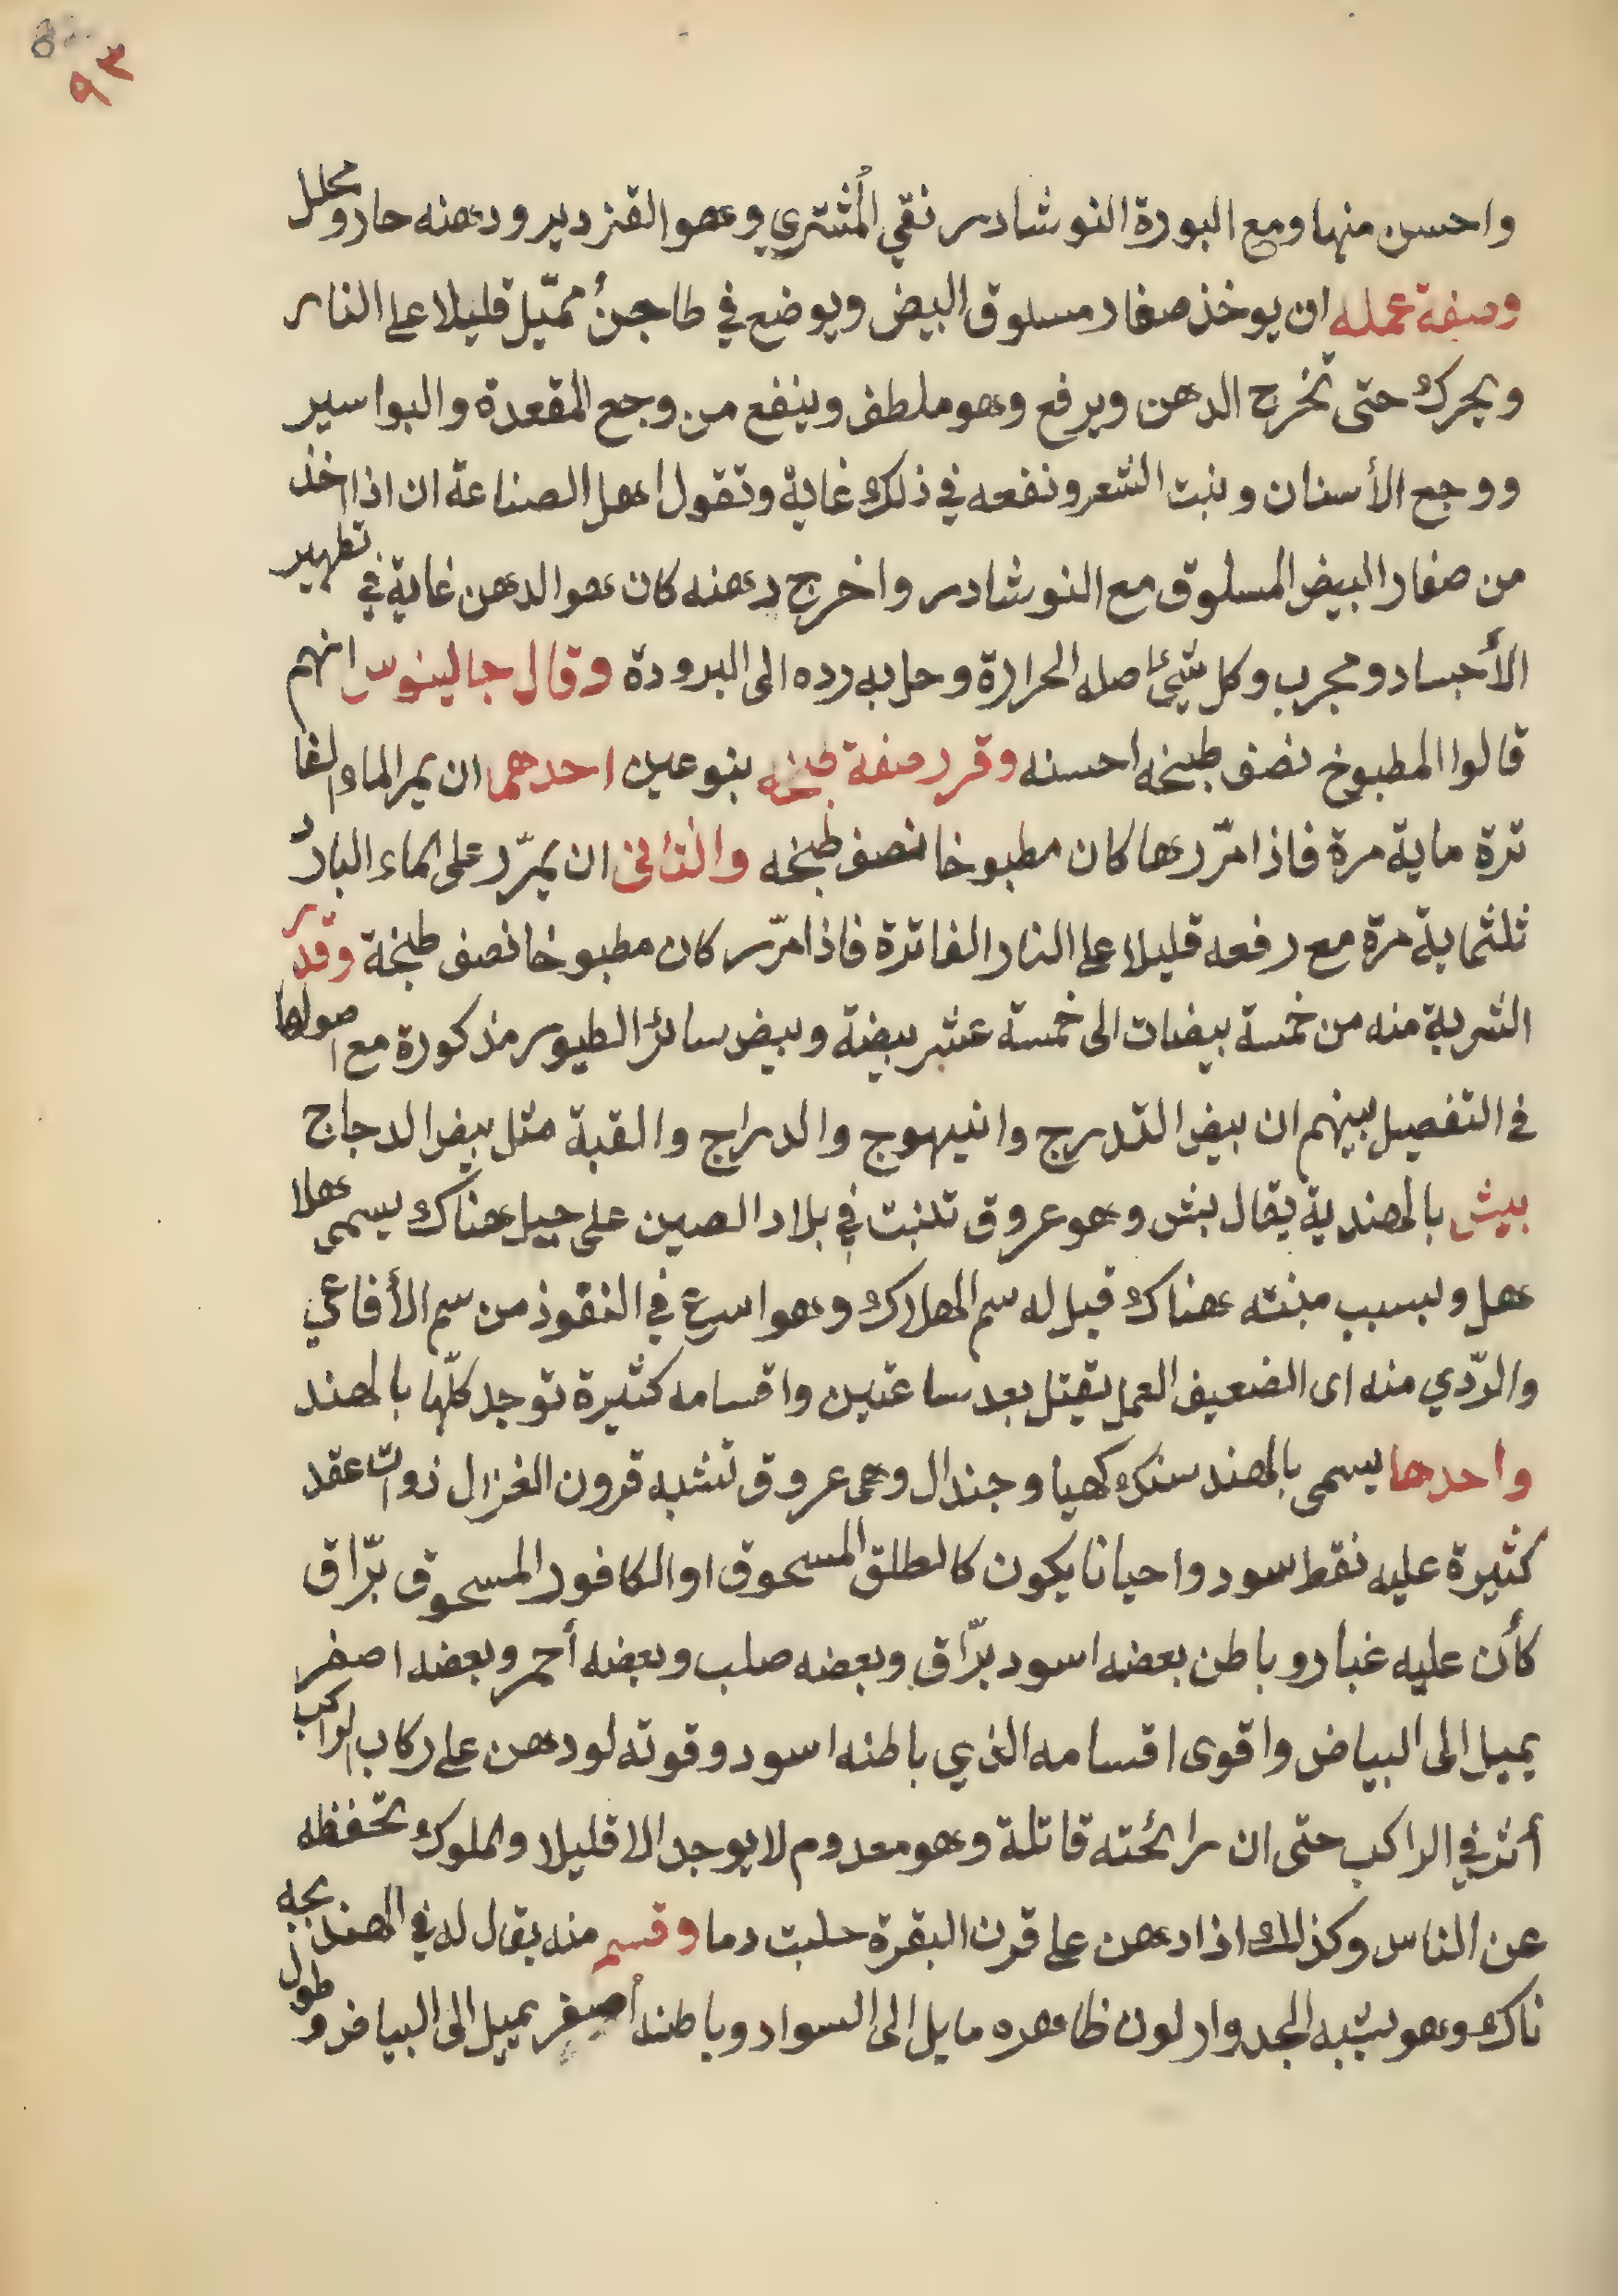 ٩٣
واحسن منها ومع البورة النوشادر نقي المشتري وهو القزدير ودهنه حار ومحلل
وصفة عمله ان يوخذ صفار مسلوق البيض ويوضع في طاجن مميّل قليلا على النار
ويحرك حتى تخرج الدهن ويرفع وهو ملطف وينفع من وجع المقعدة والبواسير
ووجع الأسنان وينبت الشعر ونفعه في ذلك غاية وتقول اهل الصناعة ان اذا اخذ
من صفار البيض المسلوق مع النوشادر واخرج دهنه كان هو الدهن غاية في تطهير
الأجساد ومجرب وكل شيئ اصله الحرارة وحل به رده الى البرودة وقال جالينوس انهم
قالوا المطبوخ نضف طبخه احسنه وقرر صفة طبخه بنوعين احدهما ان يمر الماء الفا
ترة ماية مرة فاذا مرّرها كان مطبوخا نصف طبخه والثانى ان يمرّر على الماء البارد
ثلثماية مرّة مع رفعه قليلا على النار الفاترة فاذا مرّر كان مطبوخا نصف طبخة وقدر
الشربة منه من خمسة بيضات الى خمسة عشر بيضة وبيض سائر الطيور مذكورة مع اصولها
في التفصيل بينهم ان بيض التدرج وانيهوج والدراج والقبة مثل بيض الدجاج
بيش بالهندية يقال بش وهو عروق تنبت في بلاد الصين على جبل هناك يسمى هلا
هل وبسبب منبته هناك قيل له سم الهلاك وهو اسرع في النقوذ من سم الأفاعي
والرّدي منه اى الضعيف العمل يقتل بعد ساعتين واقسامه كثيرة توجد كلّها بالهند
واحدها يسمى بالهند سنك كهيا وجندال وهى عروق تشبه قرون الغزال ذوات عقد
كثيرة عليه نقط سود واحيانا يكون كالطلق المسحوق او الكافور المسحوق برّاق
كأن عليه غبار وباطن بعضه اسود برّاق وبعضه صلب وبعضه أحمر وبعضه اصفر
يميل الى البياض واقوى اقسامه الذي باطنه اسود وقوته لو دهن على ركاب الراكب
أثر في الراكب حتى ان رائحته قاتلة وهو معدوم لا يوجد الا قليلا والملوك تحفظه
عن الناس وكذلك اذا دهن على قرن البقرة حلبت دما وقسم منه يقال له في الهند بجه
ناك وهو يشبه الجدوار لون ظاهره مايل الى السواد وباطنه أصفر يميل الى البياض وطول